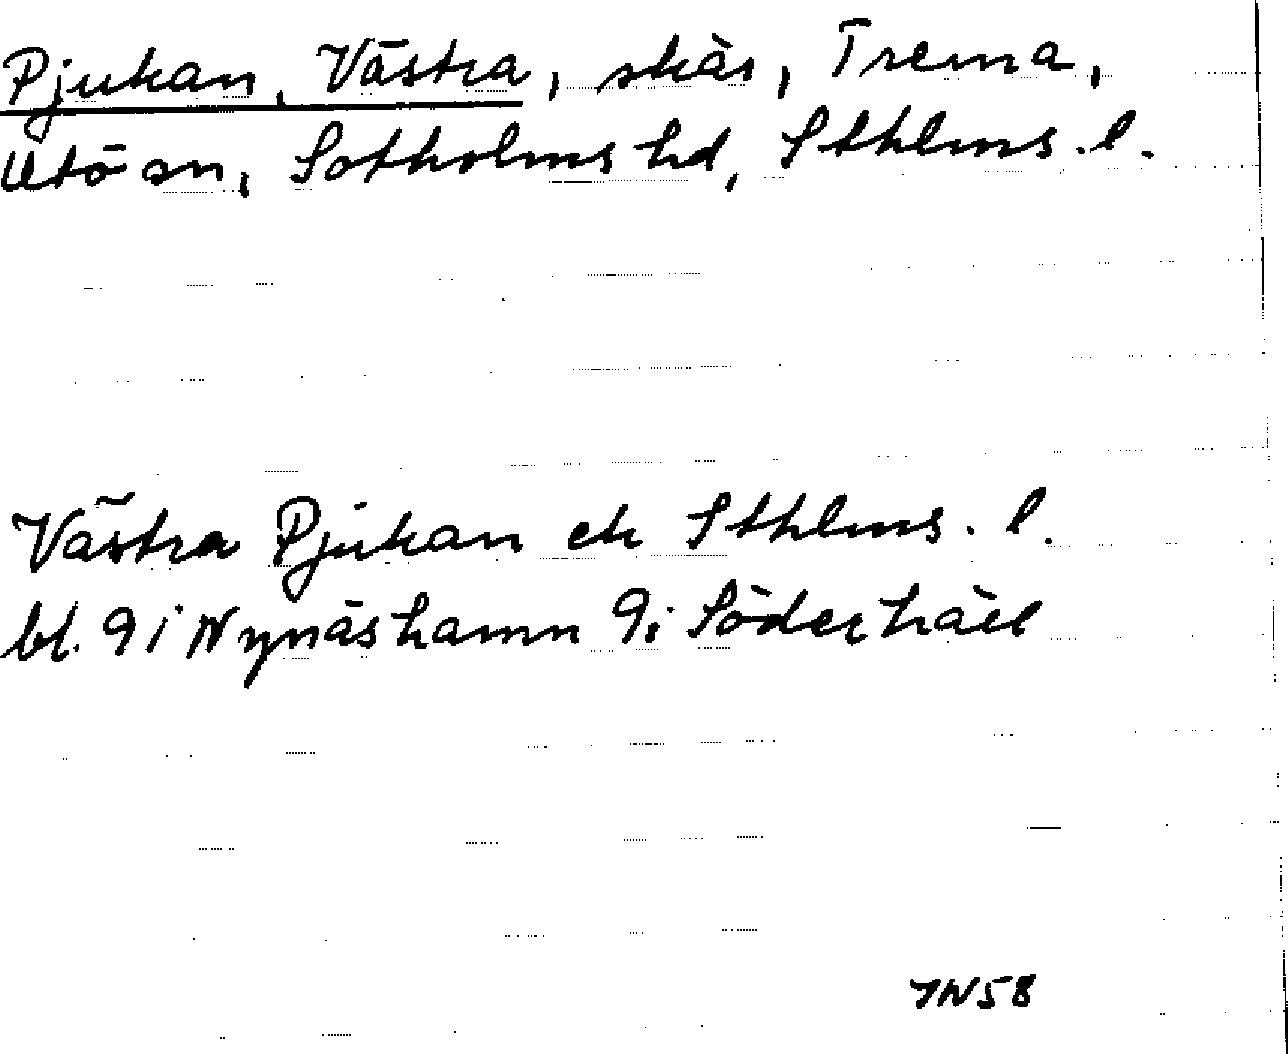 Pjukan, Västra, skär, Trema,
Utö sn, Sotholms hd, Sthlms. l.
Västra Pjukan ek Sthlms. l.
bl. 9 i Nynäshamn 9i Södertäll
JN58